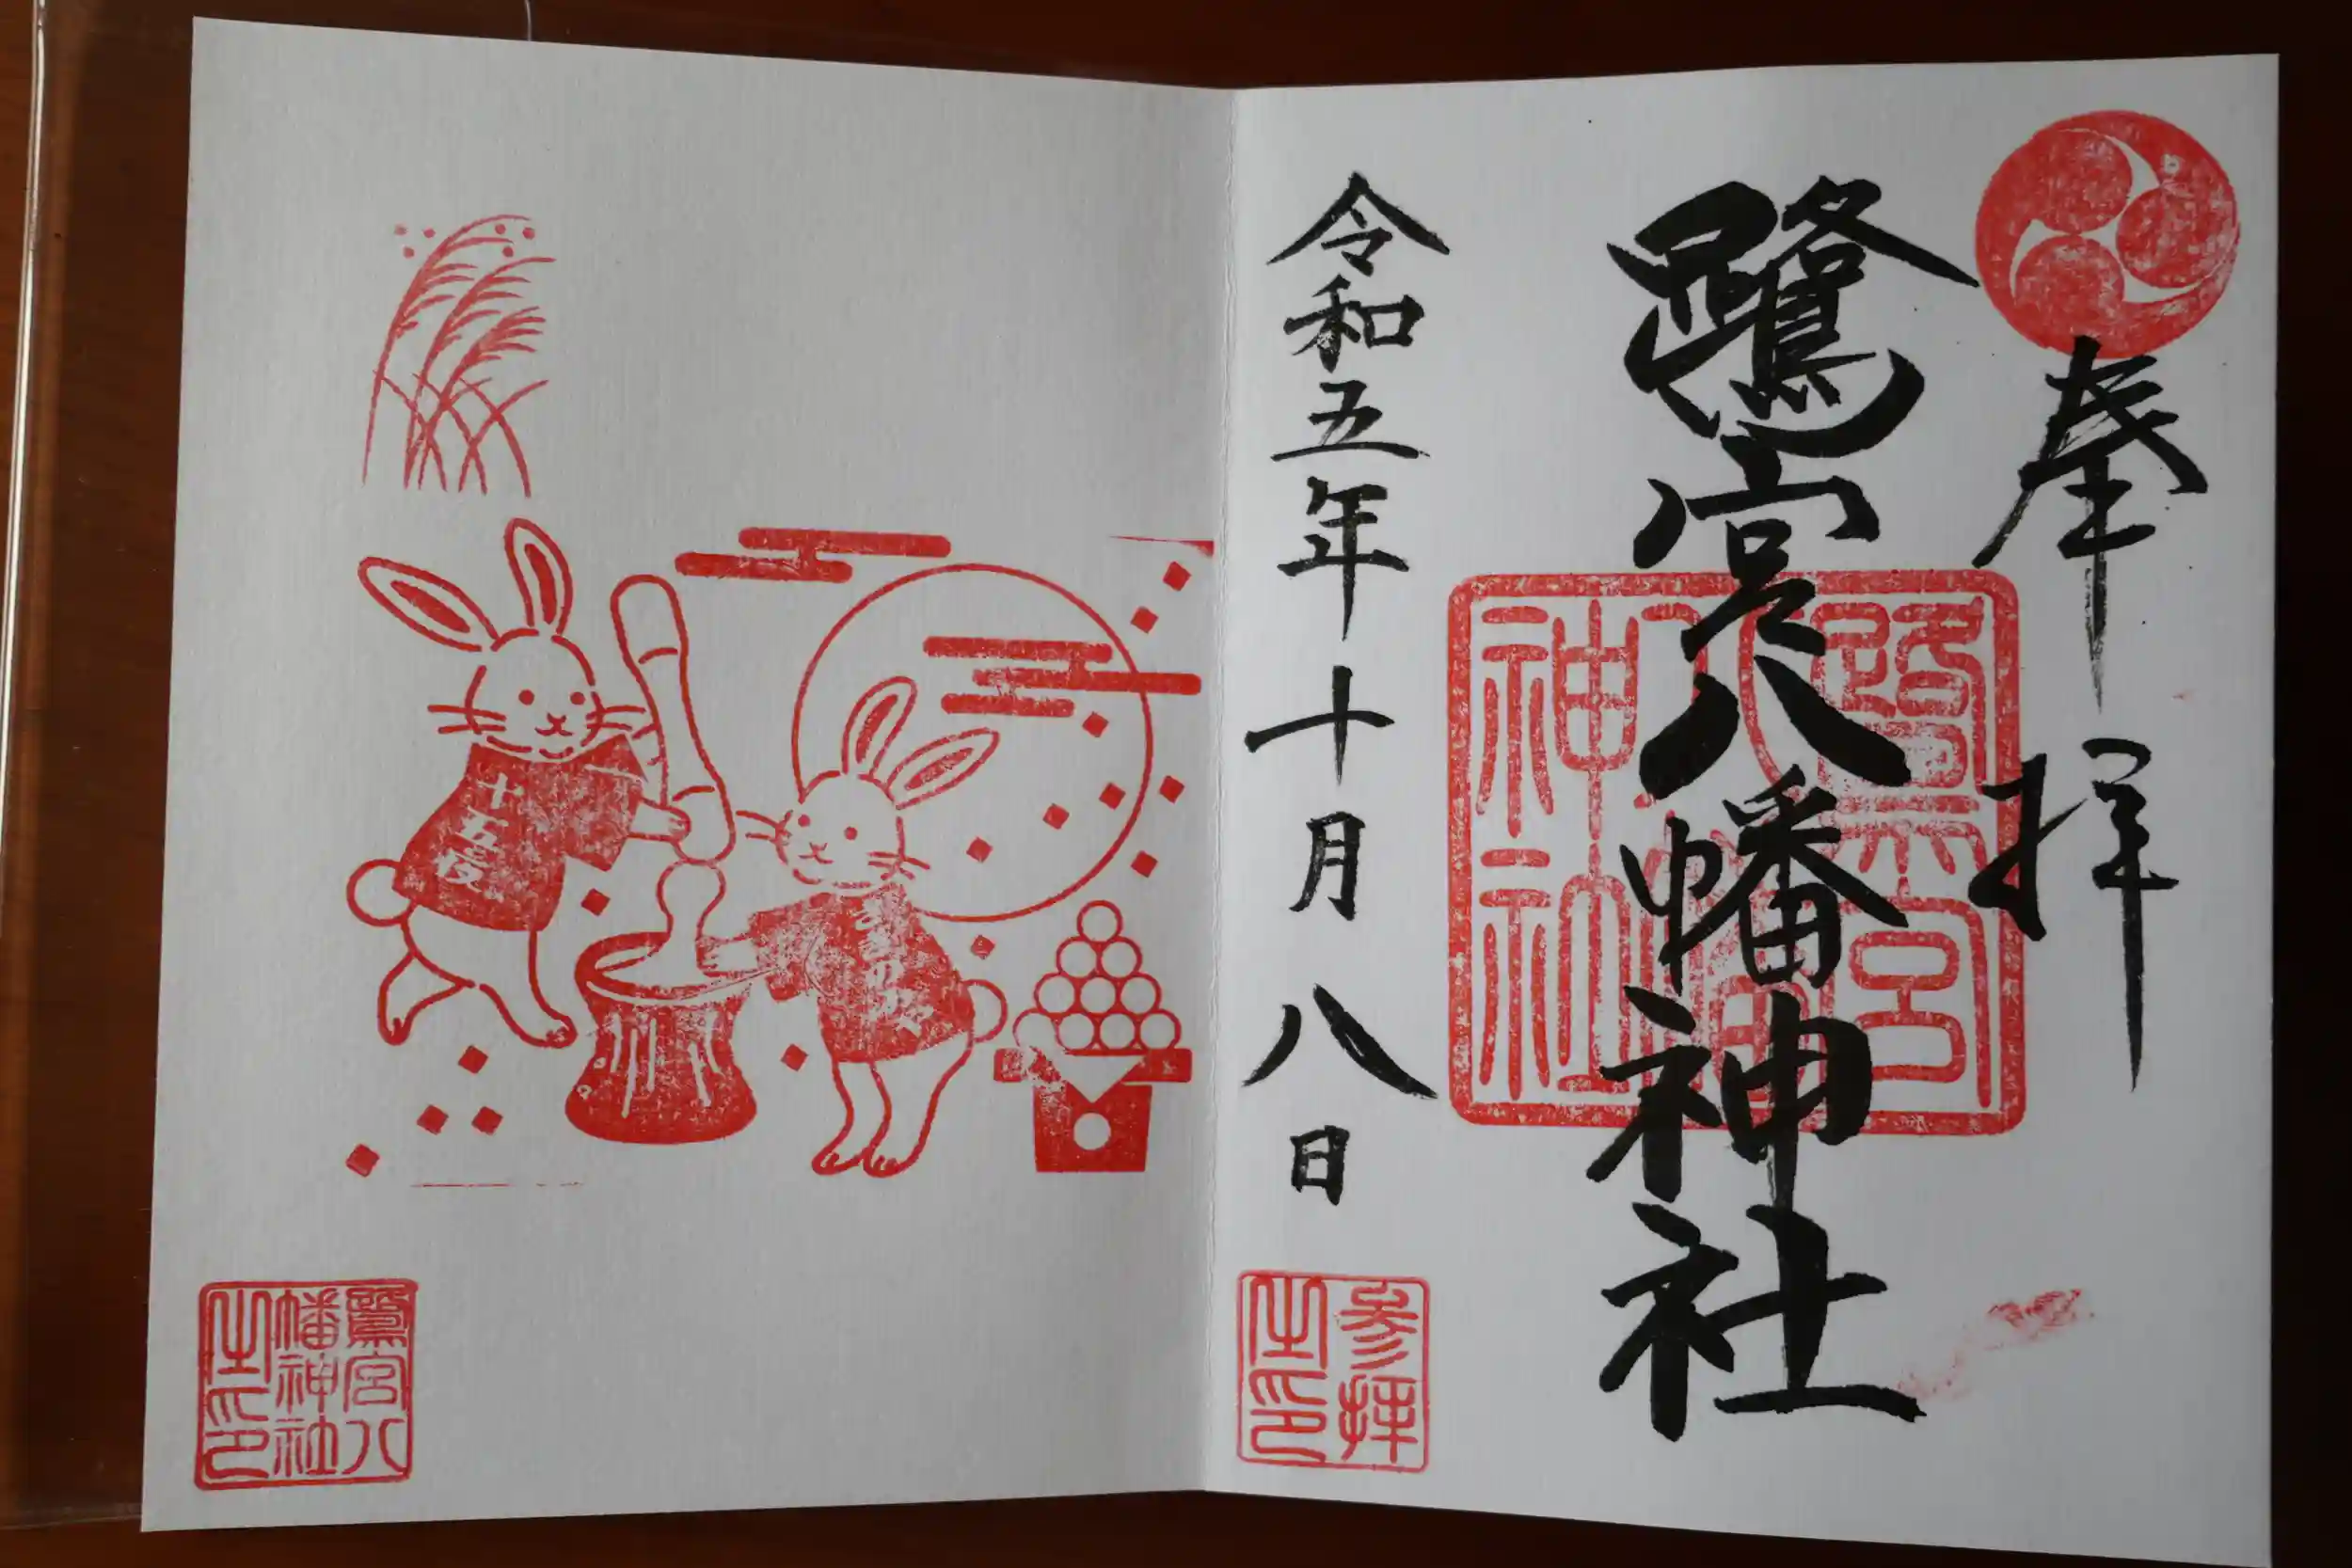 奉拝
鷺宮八幡神社
鷺宮八幡神社
令和五年十月八日
参拝之印
十五夜
鷺宮八幡神社之印